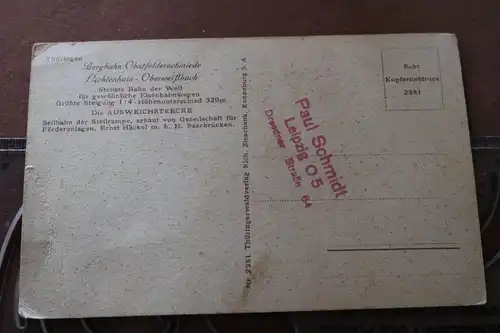 Thüringen
Bergbahn Obstfelderschmiede
Lichtenhain - Oberweißbach
Steilste Bahn der Welt
für gewöhnliche Eisenbahnwagen
Größte Steigung 1:4 - Höhenunterschied 320m
Die AUSWEICHSTRECKE
Seilbahn der Steilrampe, erbaut von Gesellschaft für
Förderanlagen, Ernst Häckel m. b. H. Saarbrücken.
Nr. 2351 Thüringerwaldverlag Rich. Zieschank, Ronneburg S. A
Paul Schmidt
Leipzig O 5
Dresdner Straße 64
Echt
Kupfertiefdruck
2351